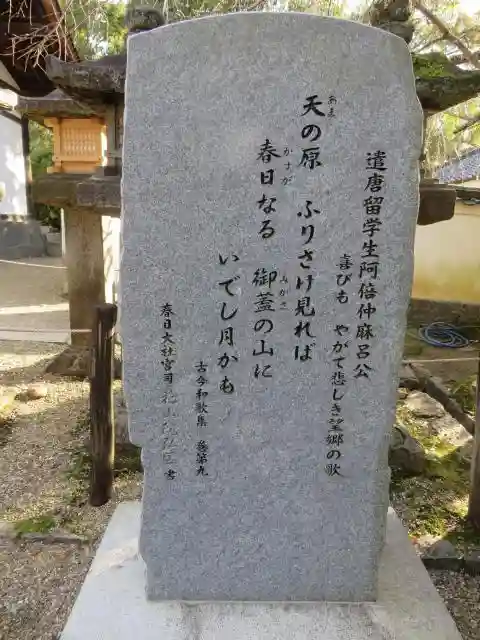 遣唐留学生阿倍仲麻呂公
喜びも やがて悲しき望郷の歌
あま
天の原 ふりさけ見れば
かすが みかさ
春日なる 御蓋の山に
いでし月かも
古今和歌集 巻第九
春日大社宮司 花山院弘匡 書